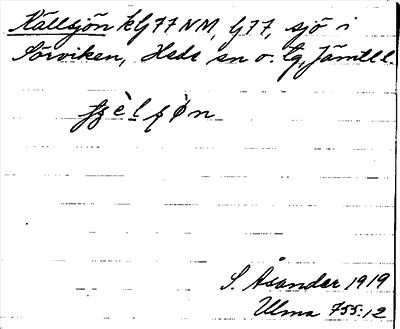 Källsjön kG77NM, G77, sjö i
Sörviken, Heds sn o. tg, Jämtl l.
S. Åsander 1919
Ulma 755:12